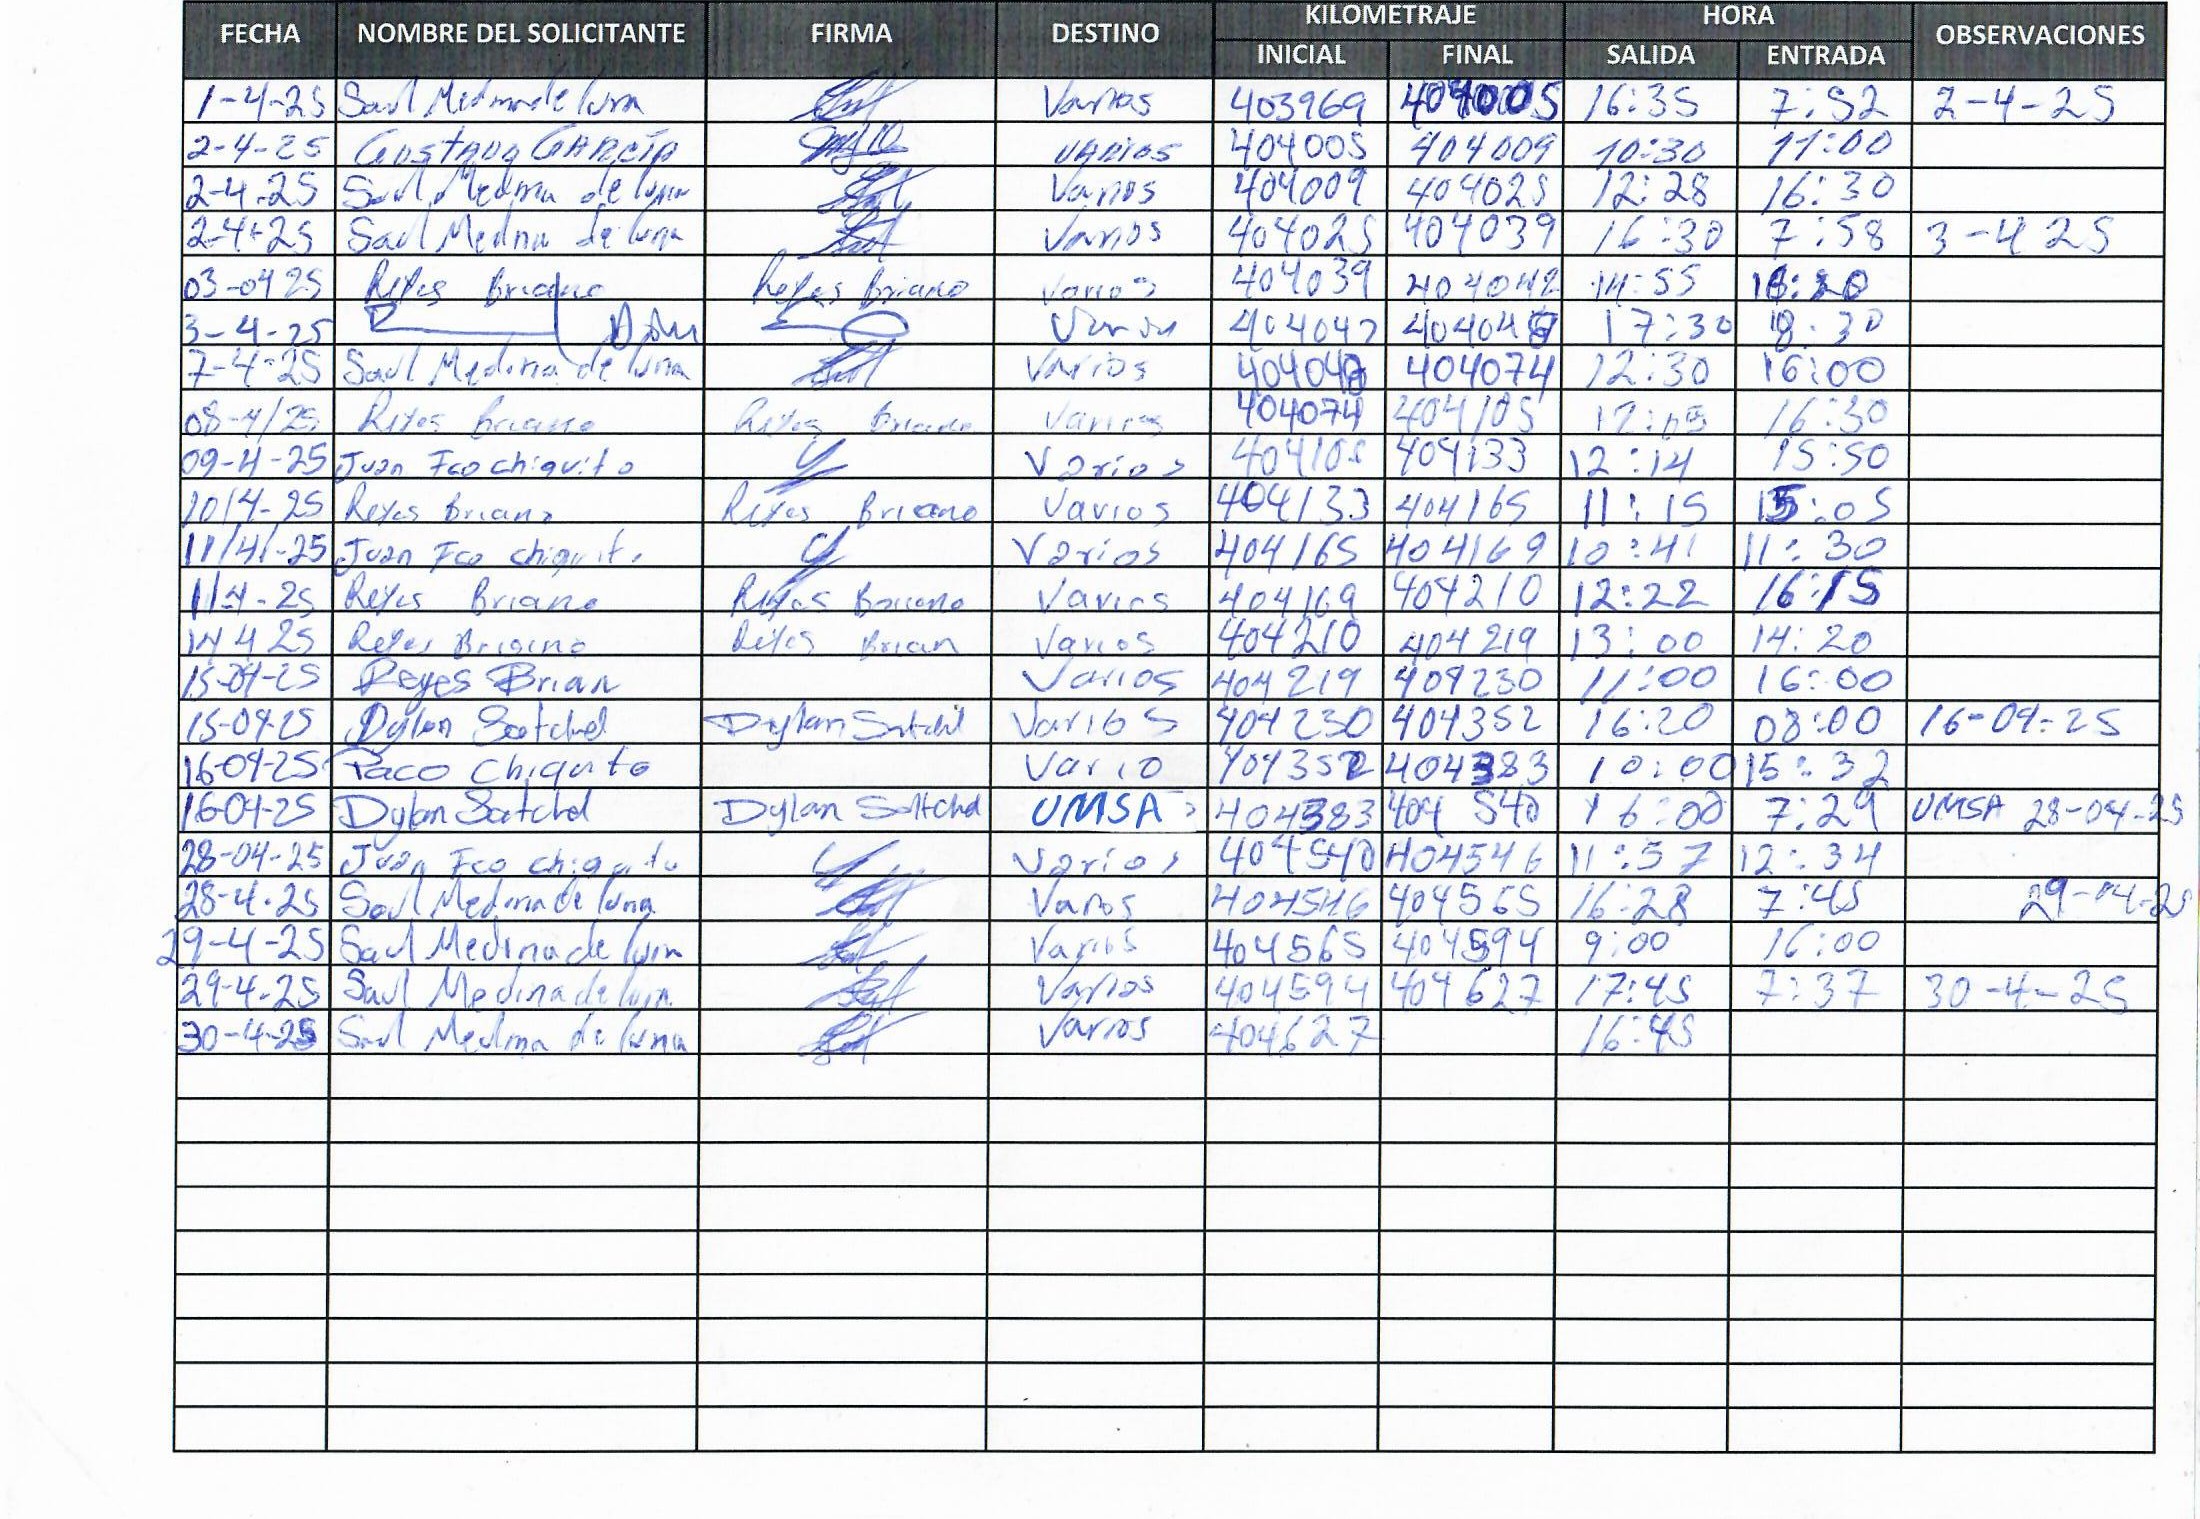 FECHA NOMBRE DEL SOLICITANTE FIRMA DESTINO KILOMETRAJE HORA OBSERVACIONES
INICIAL FINAL SALIDA ENTRADA
1-4-25 Saul Medina de luna Varios 403969 404005 16:35 7:52 2-4-25
2-4-25 GUSTAVO GARCÍA VARIOS 404005 404009 10:30 11:00
2-4-25 Saul Medina de luna Varios 404009 404025 12:28 16:30
2-4-25 Saul Medina de luna Varios 404025 404039 16:30 7:58 3-4 25
03-04 25 Reyes Briano Reyes Briano varios 404039 404042 14:55
3-4-25 404042 17:30 18:30
7-4-25 Saul Medina de luna Varios 404074 12:30 16:00
08-4/25 Reyes Briano Reyes Briano Varios 404074 404105 12:05 16:30
09-4-25 Juan Fco chiquito Varios 404105 404133 12:14 15:50
10/4-25 Reyes Briano Reyes Briano Varios 404133 404165 11:15 15:05
11/4/-25 Juan Fco chiquito Varios 404165 404169 10:41 11:30
11/4-25 Reyes Briano Reyes Briano Varios 404169 404210 12:22 16:15
14 4 25 Reyes Briano Reyes Brian Varios 404210 404219 13:00 14:20
15-04-25 Reyes Brian Varios 404219 404230 11:00 16:00
15-04-25 Dylan Satchel Dylan Satchel Varios 404230 404352 16:20 08:00 16-04-25
16-04-25 Paco Chiquito Vario 404352 404383 10:00 15:32
16-04-25 Dylan Satchel Dylan Satchel UMSA 404383 404 540 16:00 7:29 UMSA 28-04-25
28-04-25 Juan Fco chiquito Varios 404540 404546 11:57 12:34
28-4-25 Saul Medina de luna Varios 404546 404565 16:28 7:45 29-04-25
29-4-25 Saul Medina de luna Varios 404565 404594 9:00 16:00
29-4-25 Saul Medina de luna Varios 404594 404627 17:45 7:37 30-4-25
30-4-25 Saul Medina de luna Varios 404627 16:45